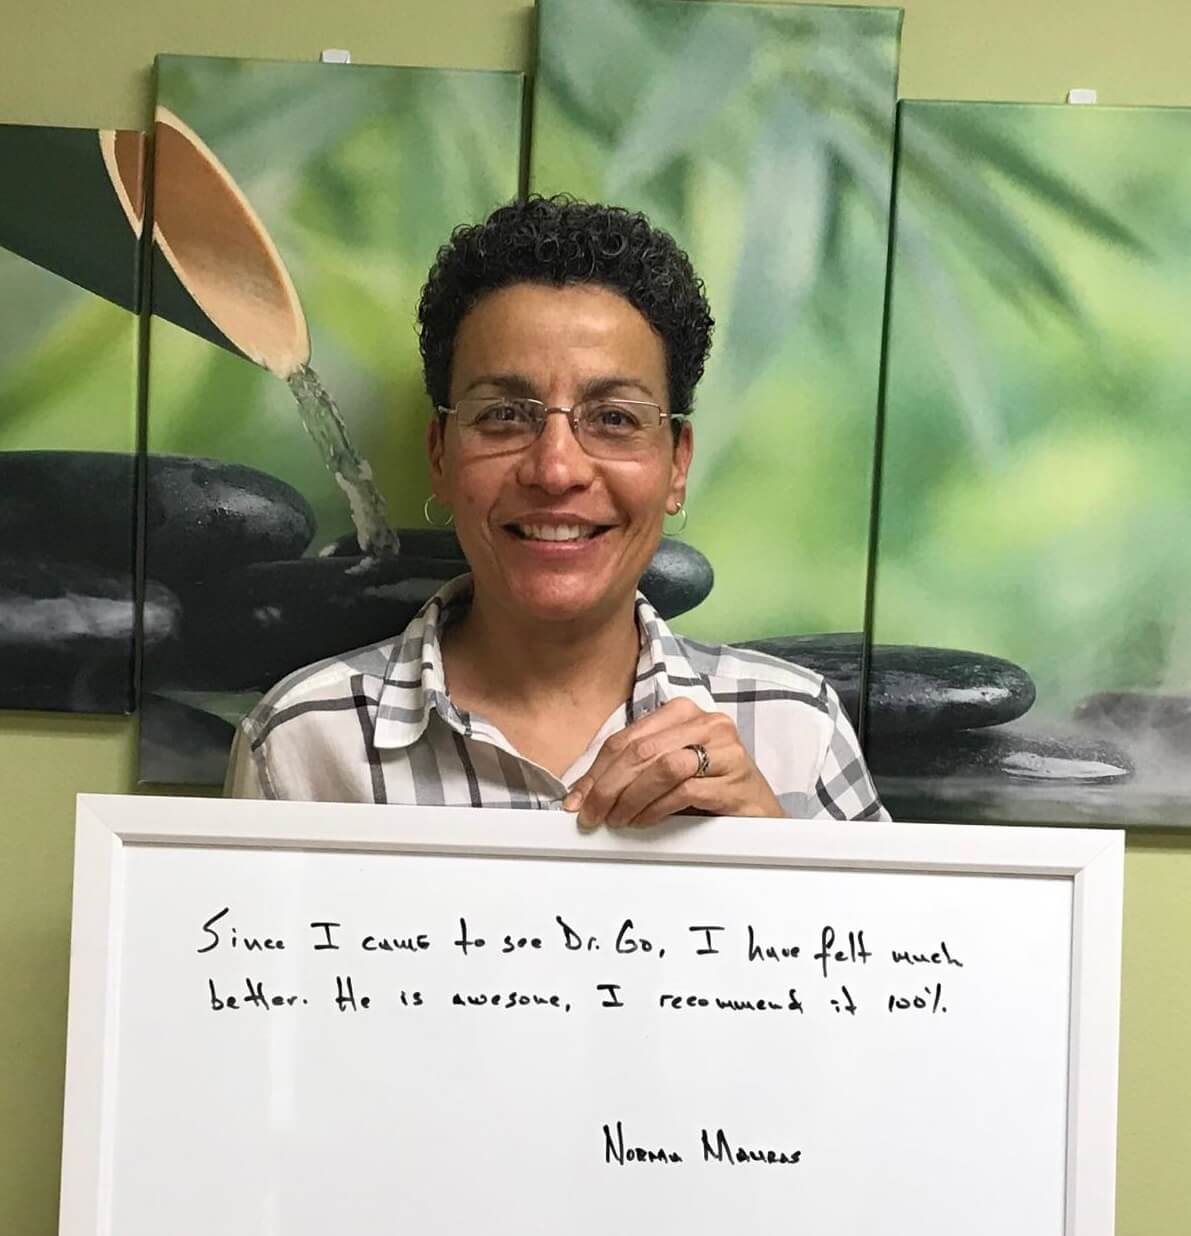 Since I came to see Dr. Go, I have felt much
better. He is awesome, I recommend it 100%.
Norma Mauras